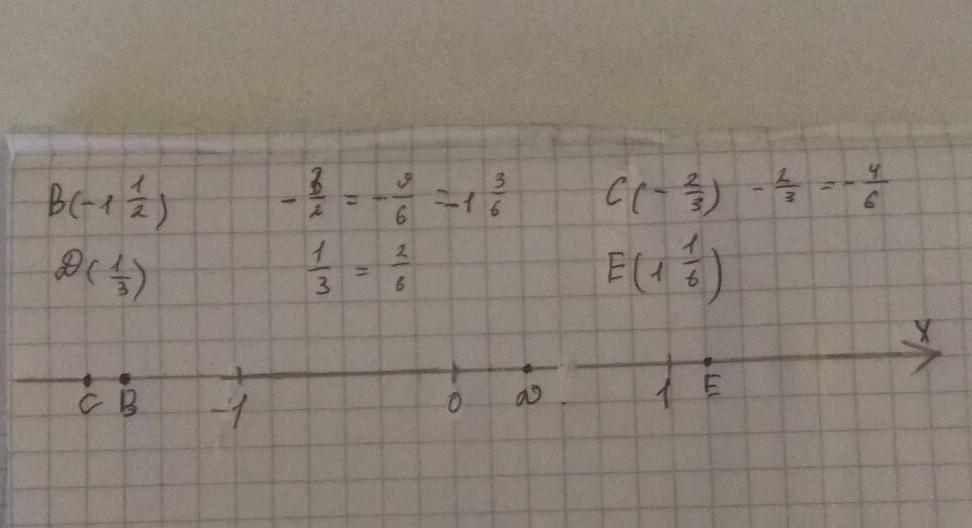 B(-1 1/2) -3/2 = -9/6 = -1 3/6 C(-2/3) -2/3 = -4/6
D(1/3) 1/3 = 2/6 E(1 1/6)
X
C B -1 0 D 1 E